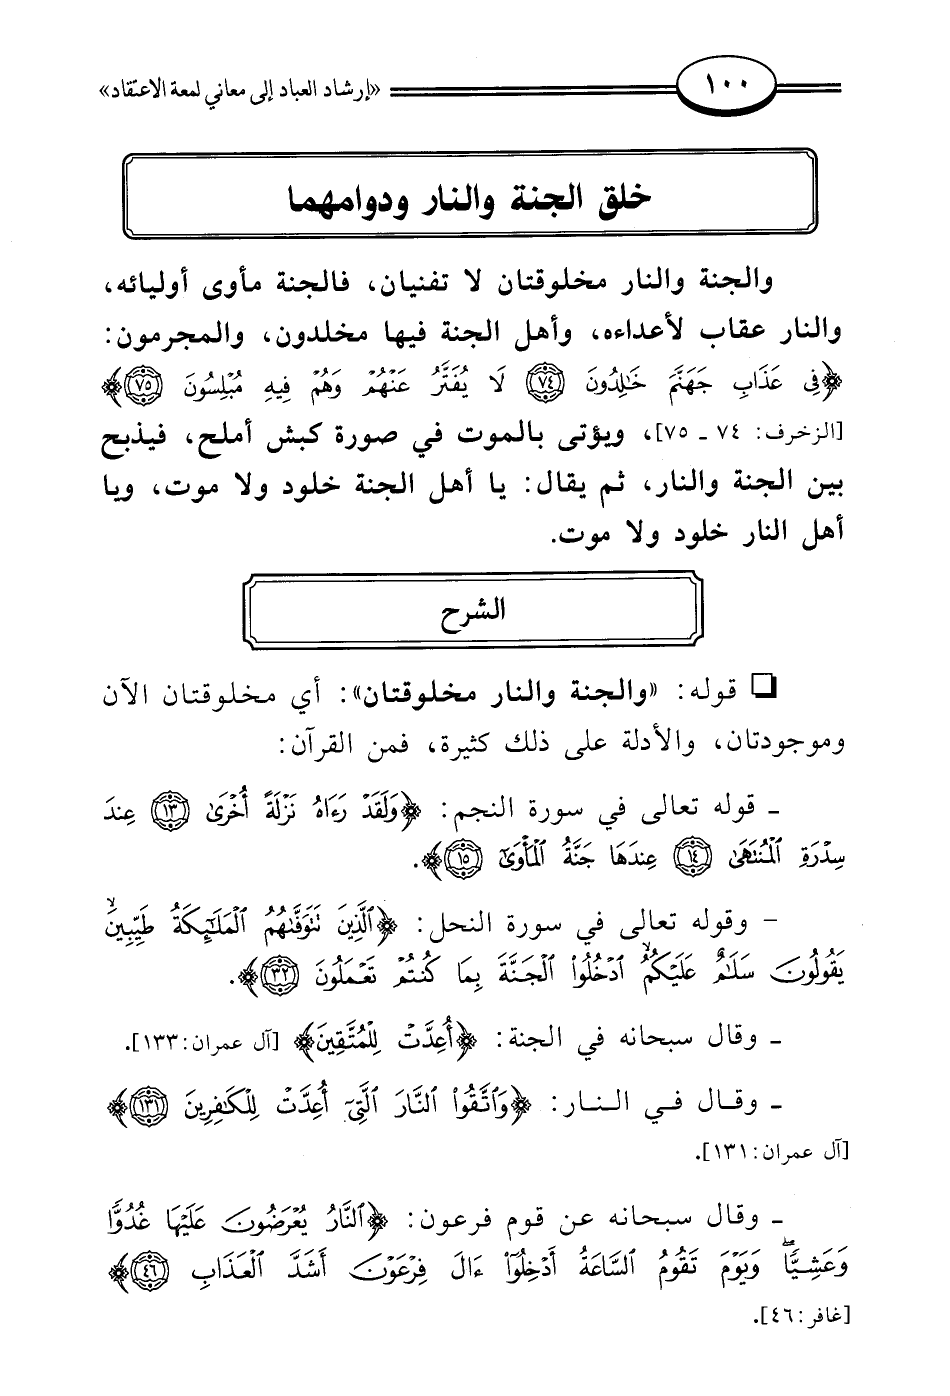 ١٠٠
«إرشاد العباد إلى معاني لمعة الاعتقاد»
خلق الجنة والنار ودوامهما
والجنة والنار مخلوقتان لا تفنيان، فالجنة مأوى أوليائه،
والنار عقاب لأعداءه، وأهل الجنة فيها مخلدون، والمجرمون:
﴿فِى عَذَابِ جَهَنَّمَ خَٰلِدُونَ ٧٤ لَا يُفَتَّرُ عَنْهُمْ وَهُمْ فِيهِ مُبْلِسُونَ ٧٥﴾
[الزخرف: ٧٤ ـ ٧٥]، ويؤتى بالموت في صورة كبش أملح، فيذبح
بين الجنة والنار، ثم يقال: يا أهل الجنة خلود ولا موت، ويا
أهل النار خلود ولا موت.
الشرح
❏ قوله: «والجنة والنار مخلوقتان»: أي مخلوقتان الآن
وموجودتان، والأدلة على ذلك كثيرة، فمن القرآن:
ـ قوله تعالى في سورة النجم: ﴿وَلَقَدْ رَءَاهُ نَزْلَةً أُخْرَىٰ ١٣ عِندَ
سِدْرَةِ ٱلْمُنتَهَىٰ ١٤ عِندَهَا جَنَّةُ ٱلْمَأْوَىٰٓ ١٥﴾.
- وقوله تعالى في سورة النحل: ﴿ٱلَّذِينَ تَتَوَفَّىٰهُمُ ٱلْمَلَٰٓئِكَةُ طَيِّبِينَۙ
يَقُولُونَ سَلَٰمٌ عَلَيْكُمُۙ ٱدْخُلُوا۟ ٱلْجَنَّةَ بِمَا كُنتُمْ تَعْمَلُونَ ٣٢﴾.
ـ وقال سبحانه في الجنة: ﴿أُعِدَّتْ لِلْمُتَّقِينَ﴾ [آل عمران: ١٣٣].
ـ وقال في النار: ﴿وَٱتَّقُوا۟ ٱلنَّارَ ٱلَّتِىٓ أُعِدَّتْ لِلْكَٰفِرِينَ ١٣١﴾
[آل عمران: ١٣١].
ـ وقال سبحانه عن قوم فرعون: ﴿ٱلنَّارُ يُعْرَضُونَ عَلَيْهَا غُدُوًّا
وَعَشِيًّاۖ وَيَوْمَ تَقُومُ ٱلسَّاعَةُ أَدْخِلُوٓا۟ ءَالَ فِرْعَوْنَ أَشَدَّ ٱلْعَذَابِ ٤٦﴾
[غافر: ٤٦].